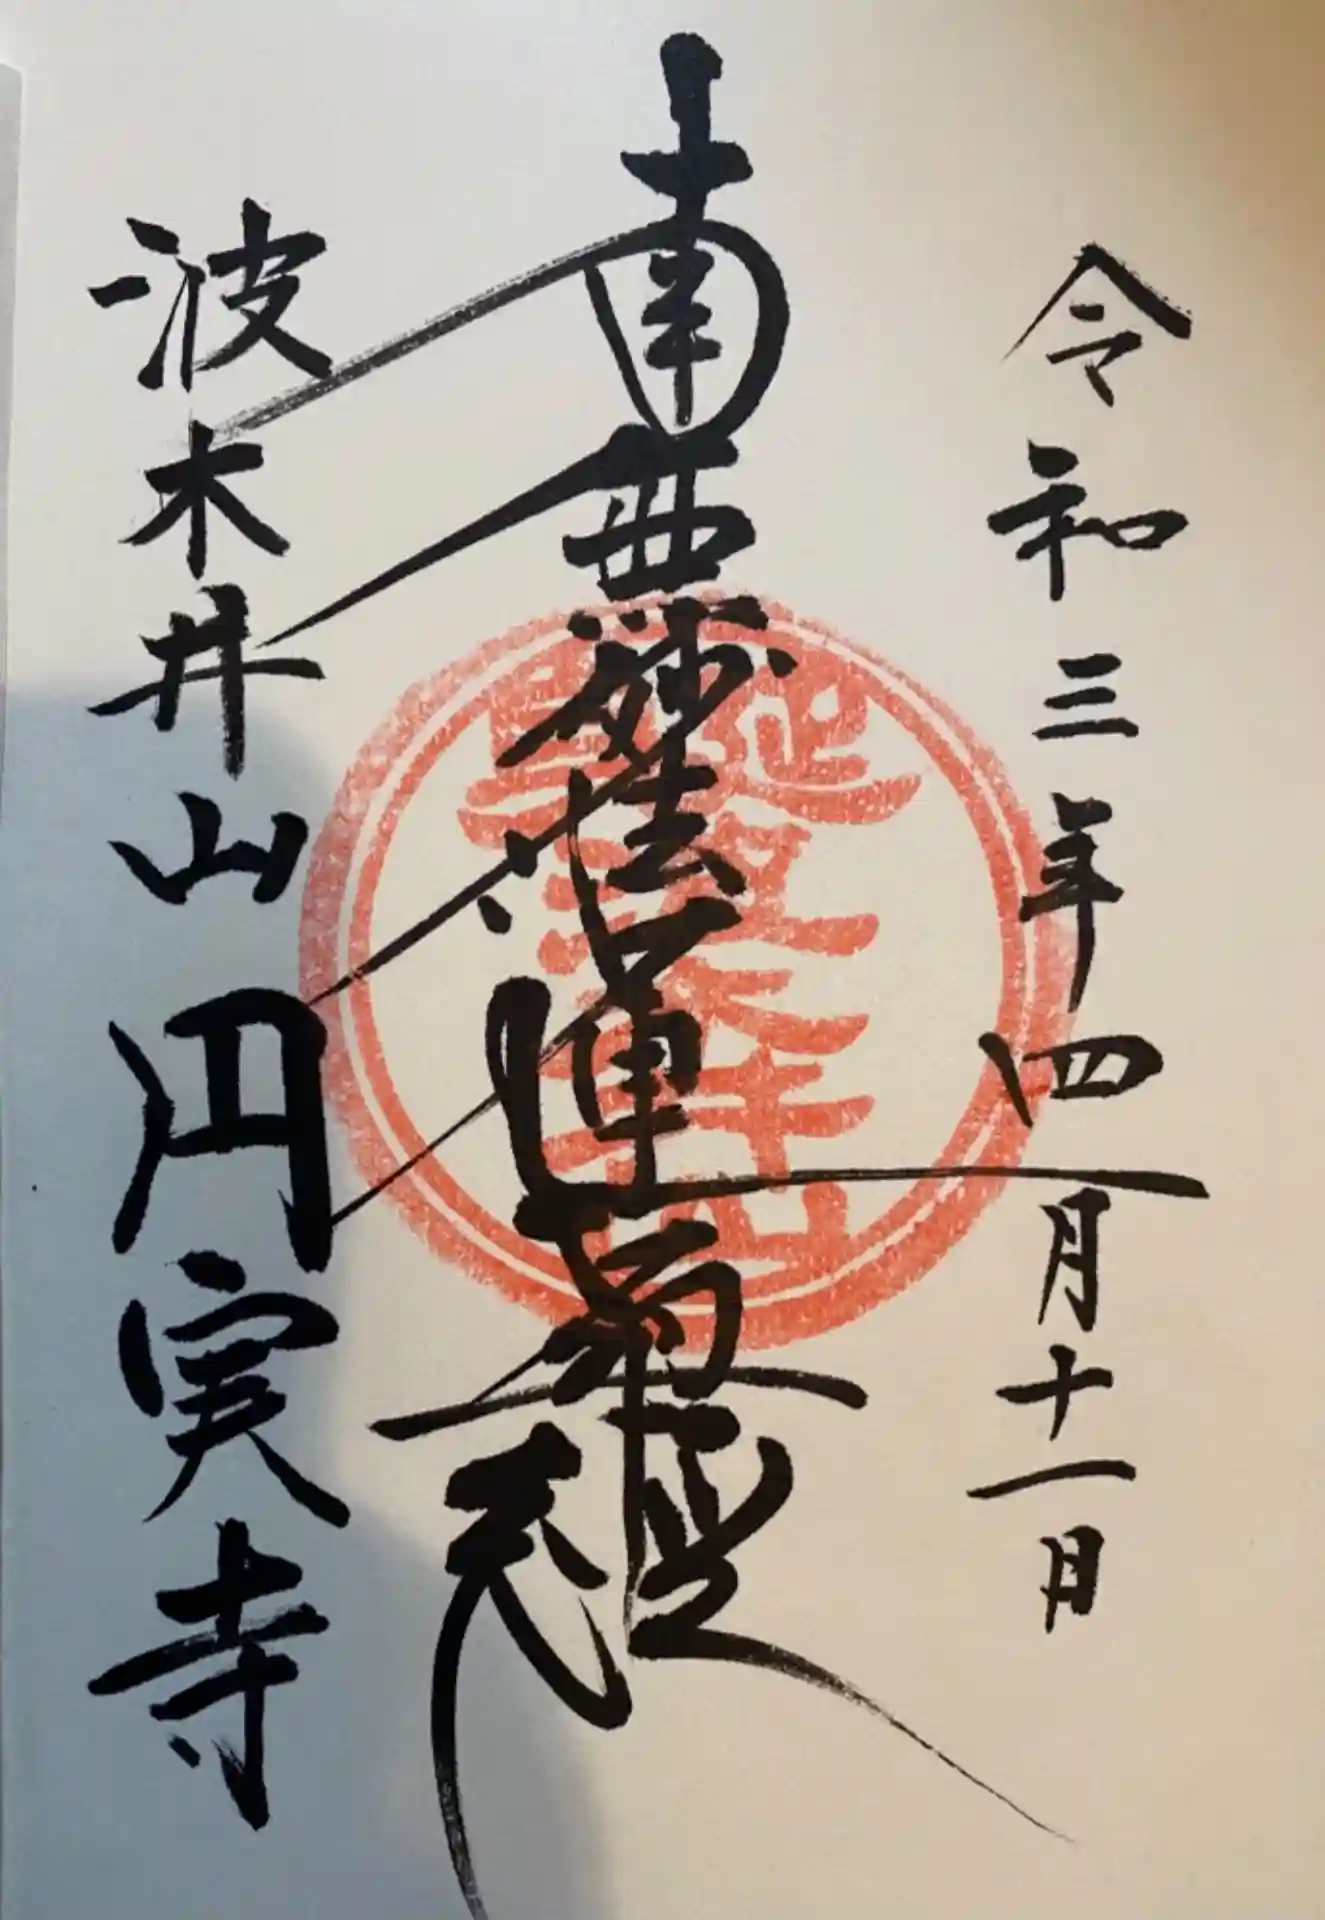 令和三年四月十一日
南無妙法蓮華経
波木井山円実寺